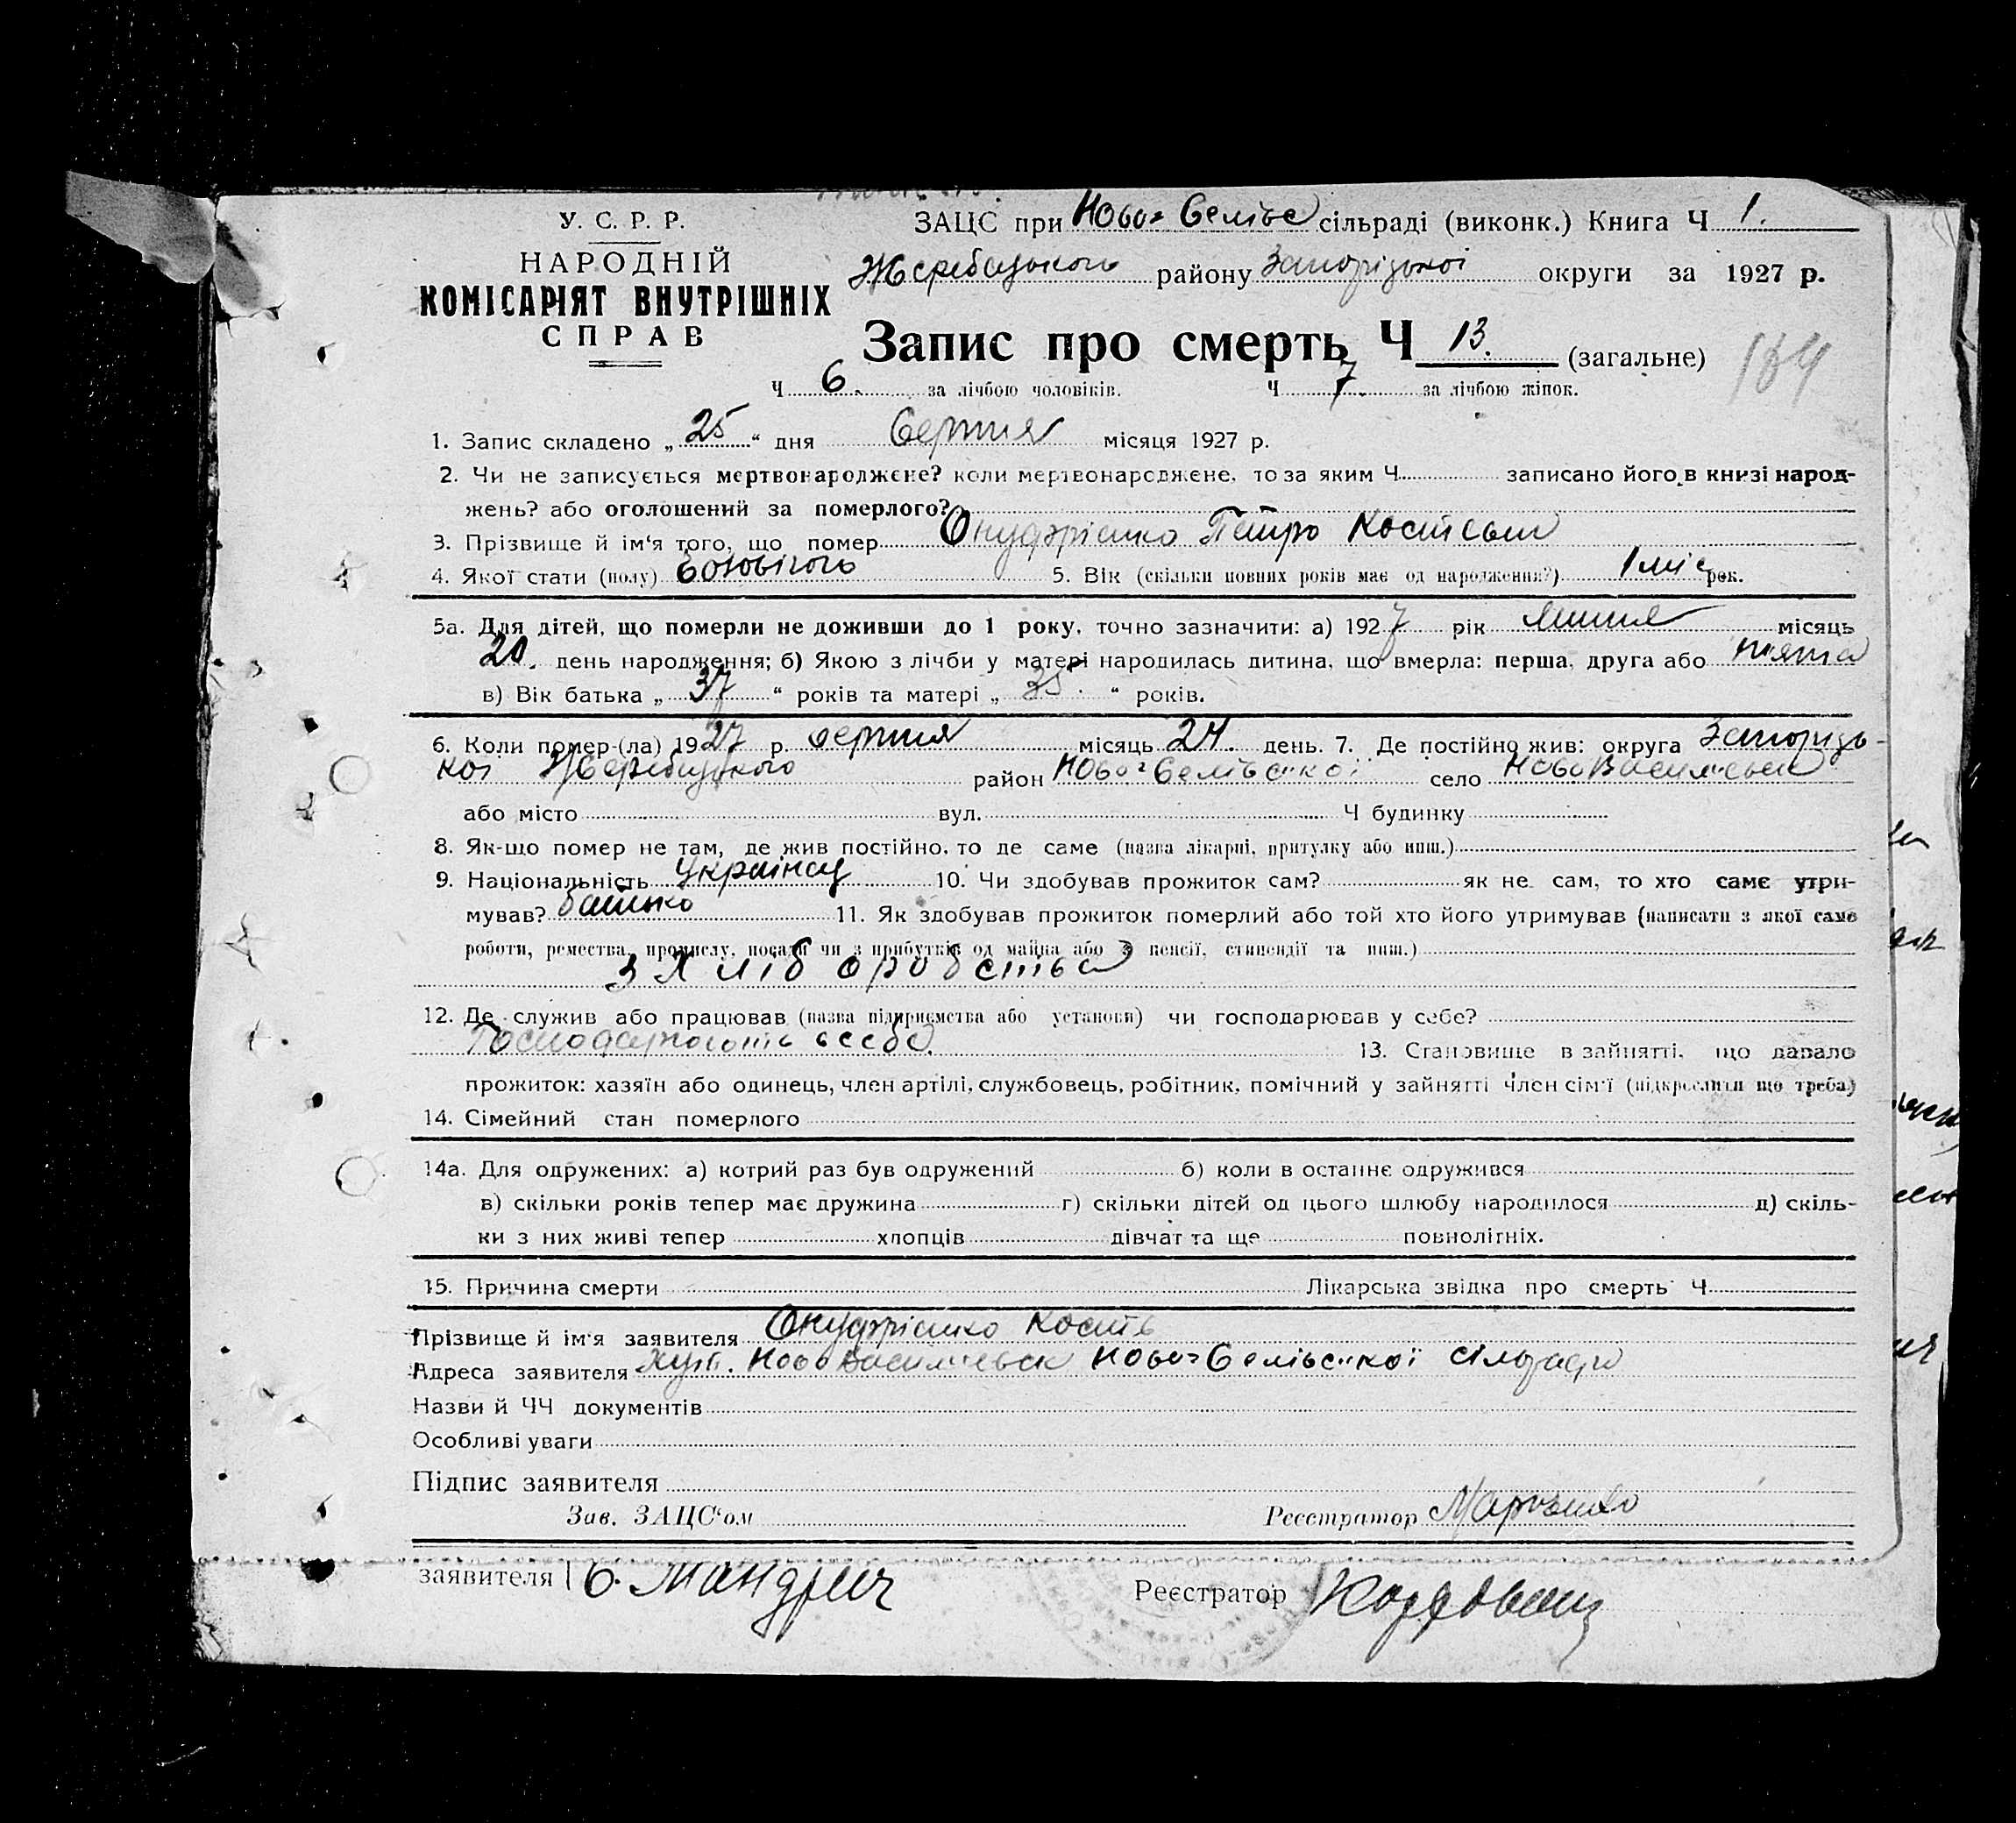 У. С. Р. Р.
НАРОДНІЙ
КОМІСАРІЯТ ВНУТРІШНІХ
СПРАВ
ЗАЦС при Ново-Селівс сільраді (виконк.) Книга Ч 1.
Жеребецького району Запорізької округи за 1927 р.
Запис про смерть Ч 13. (загальне)
184
Ч 6. за лічбою чоловіків. Ч 7. за лічбою жінок.
1. Запис складено „ 25 “ дня Серпня місяця 1927 р.
2. Чи не записується мертвонароджене? коли мертвонароджене, то за яким Ч записано його в книзі народ-
жень? або оголошений за померлого?
3. Прізвище й ім‘я того, що помер Онуфрієнко Петро Костєвич
4. Якої стати (полу) 5. Вік (скільки повних років має од народження?) 1 міс рок.
5а. Для дітей, що померли не доживши до 1 року, точно зазначити: а) 1927 рік липня місяць
20. день народження; б) Якою з лічби у матері народилась дитина, що вмерла: перша, друга або пята
в) Вік батька „ 37 “ років та матері „ 35. “ років.
6. Коли помер-(ла) 1927 р. серпня місяць 24. день. 7. Де постійно жив: округа Запорізь-
кої Жеребецького район Ново-Селівської село НовоВасилівськ
або місто вул. Ч будинку
8. Як-що помер не там, де жив постійно, то де саме (назва лікарні, притулку або инш.)
9. Національність Українец 10. Чи здобував прожиток сам? як не сам, то хто саме утри-
мував? батько 11. Як здобував прожиток померлий або той хто його утримував (написати з якої саме
роботи, ремества, промислу, посади чи з прибутків од майна або з пенсії, стипендії та инш.)
з Хліборобства
12. Де служив або працював (назва підприємства або установи) чи господарював у себе?
Господарюють всебе. 13. Становище в зайнятті, що давало
прожиток: хазяїн або одинець, член артілі, службовець, робітник, помічний у зайнятті член сім‘ї (підкреслити що треба)
14. Сімейний стан померлого
14а. Для одружених: а) котрий раз був одружений б) коли в останнє одружився
в) скільки років тепер має дружина г) скільки дітей од цього шлюбу народилося д) скіль-
ки з них живі тепер хлопців дівчат та ще повнолітніх.
15. Причина смерти Лікарська звідка про смерть Ч
Прізвище й ім‘я заявителя Онуфрієнко Кость
Адреса заявителя хут. НовоВасилівськ Ново-Селівської сільради
Назви й ЧЧ документів
Особливі уваги
Підпис заявителя
Зав. ЗАЦС‘ом Реєстратор Марченко
заявителя Мандрич Реєстратор